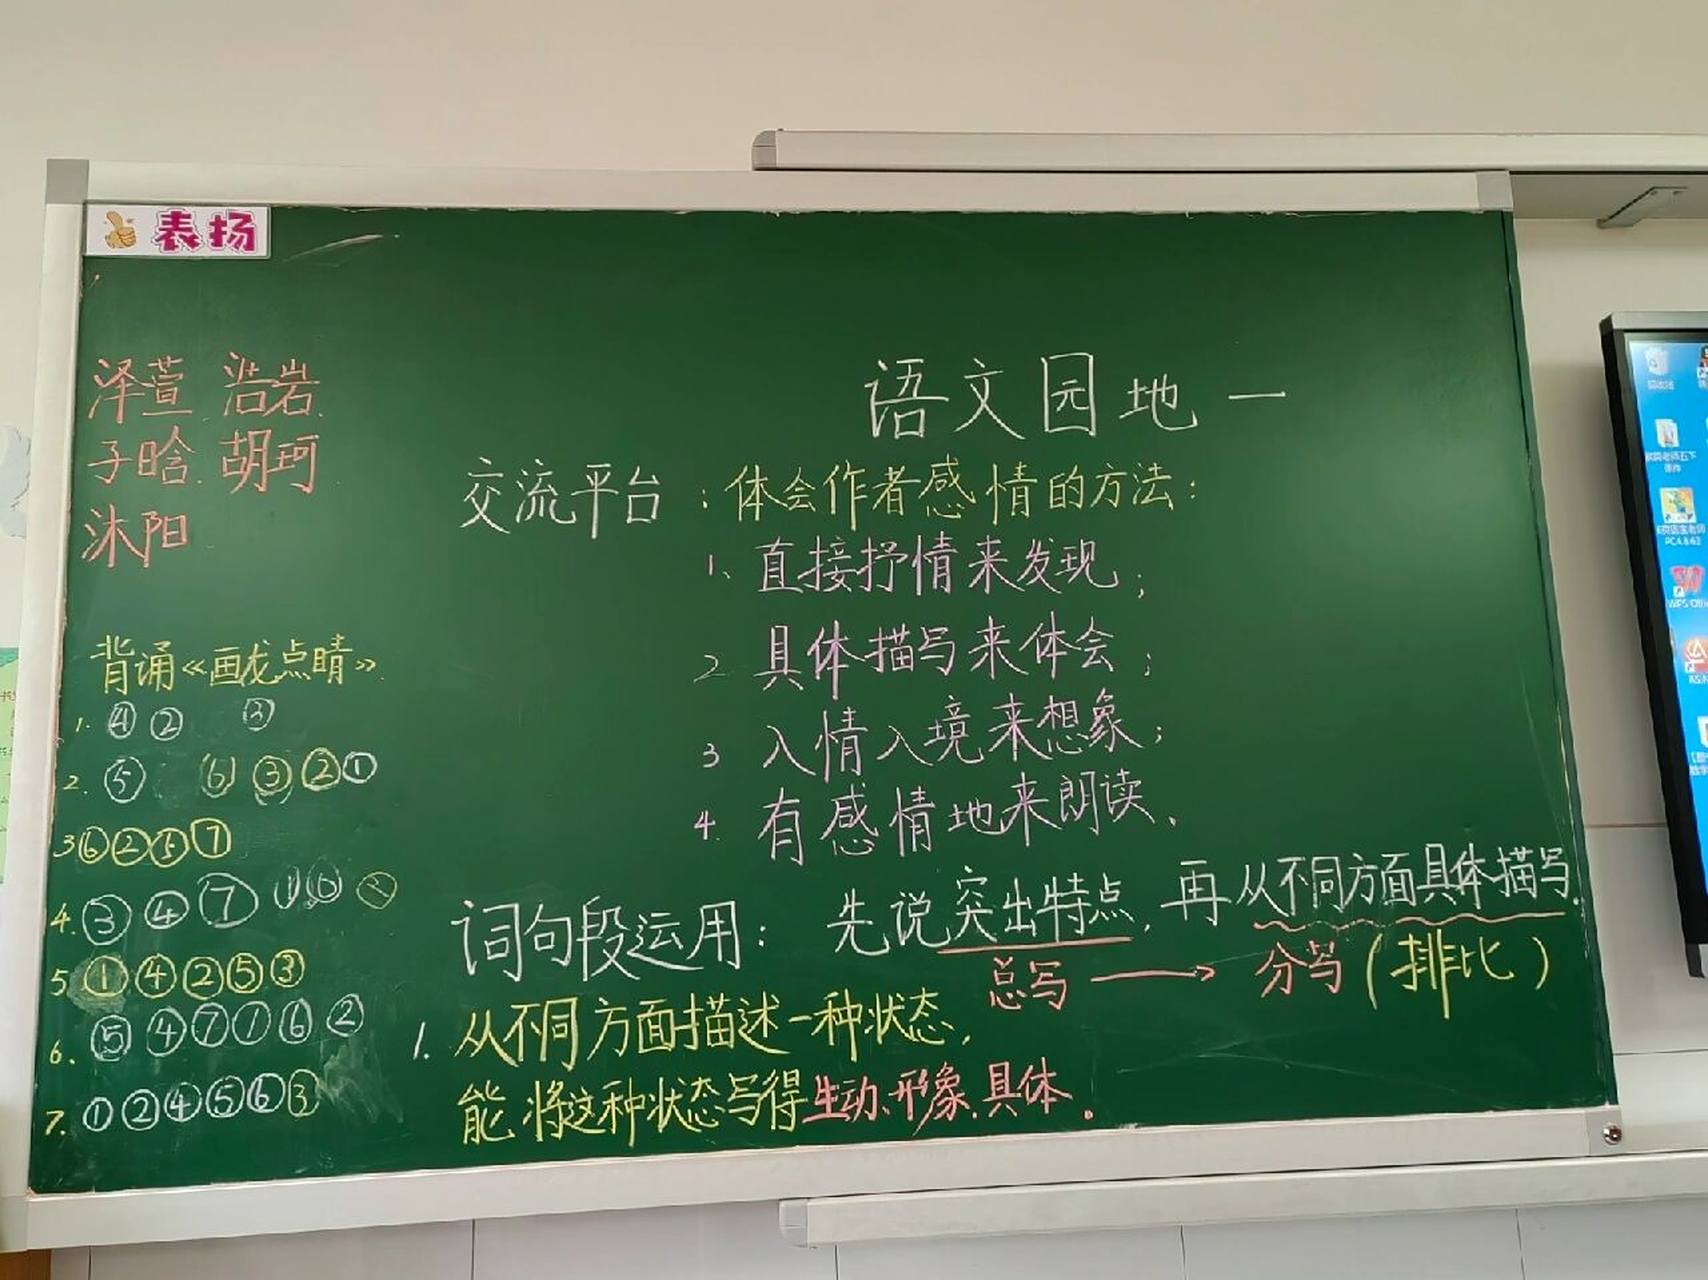 表扬
泽萱 浩岩
子晗 胡珂
沐阳
背诵《画龙点睛》
1. ④ ② ③
2. ⑤ ⑥ ③ ② ①
3 ⑥ ② ⑤ ⑦
4. ③ ④ ⑦ ① ⑥ ②
5 ① ④ ② ⑤ ③
6. ⑤ ④ ⑦ ① ⑥ ②
7. ① ② ④ ⑤ ⑥ ③
语文园地一
交流平台：体会作者感情的方法：
1、直接抒情来发现；
2 具体描写来体会；
3 入情入境来想象；
4. 有感情地来朗读、
词句段运用：先说突出特点，再从不同方面具体描写.
总写 → 分写（排比）
1. 从不同方面描述一种状态，
能将这种状态写得生动、形象、具体。
回收站
WPS Office